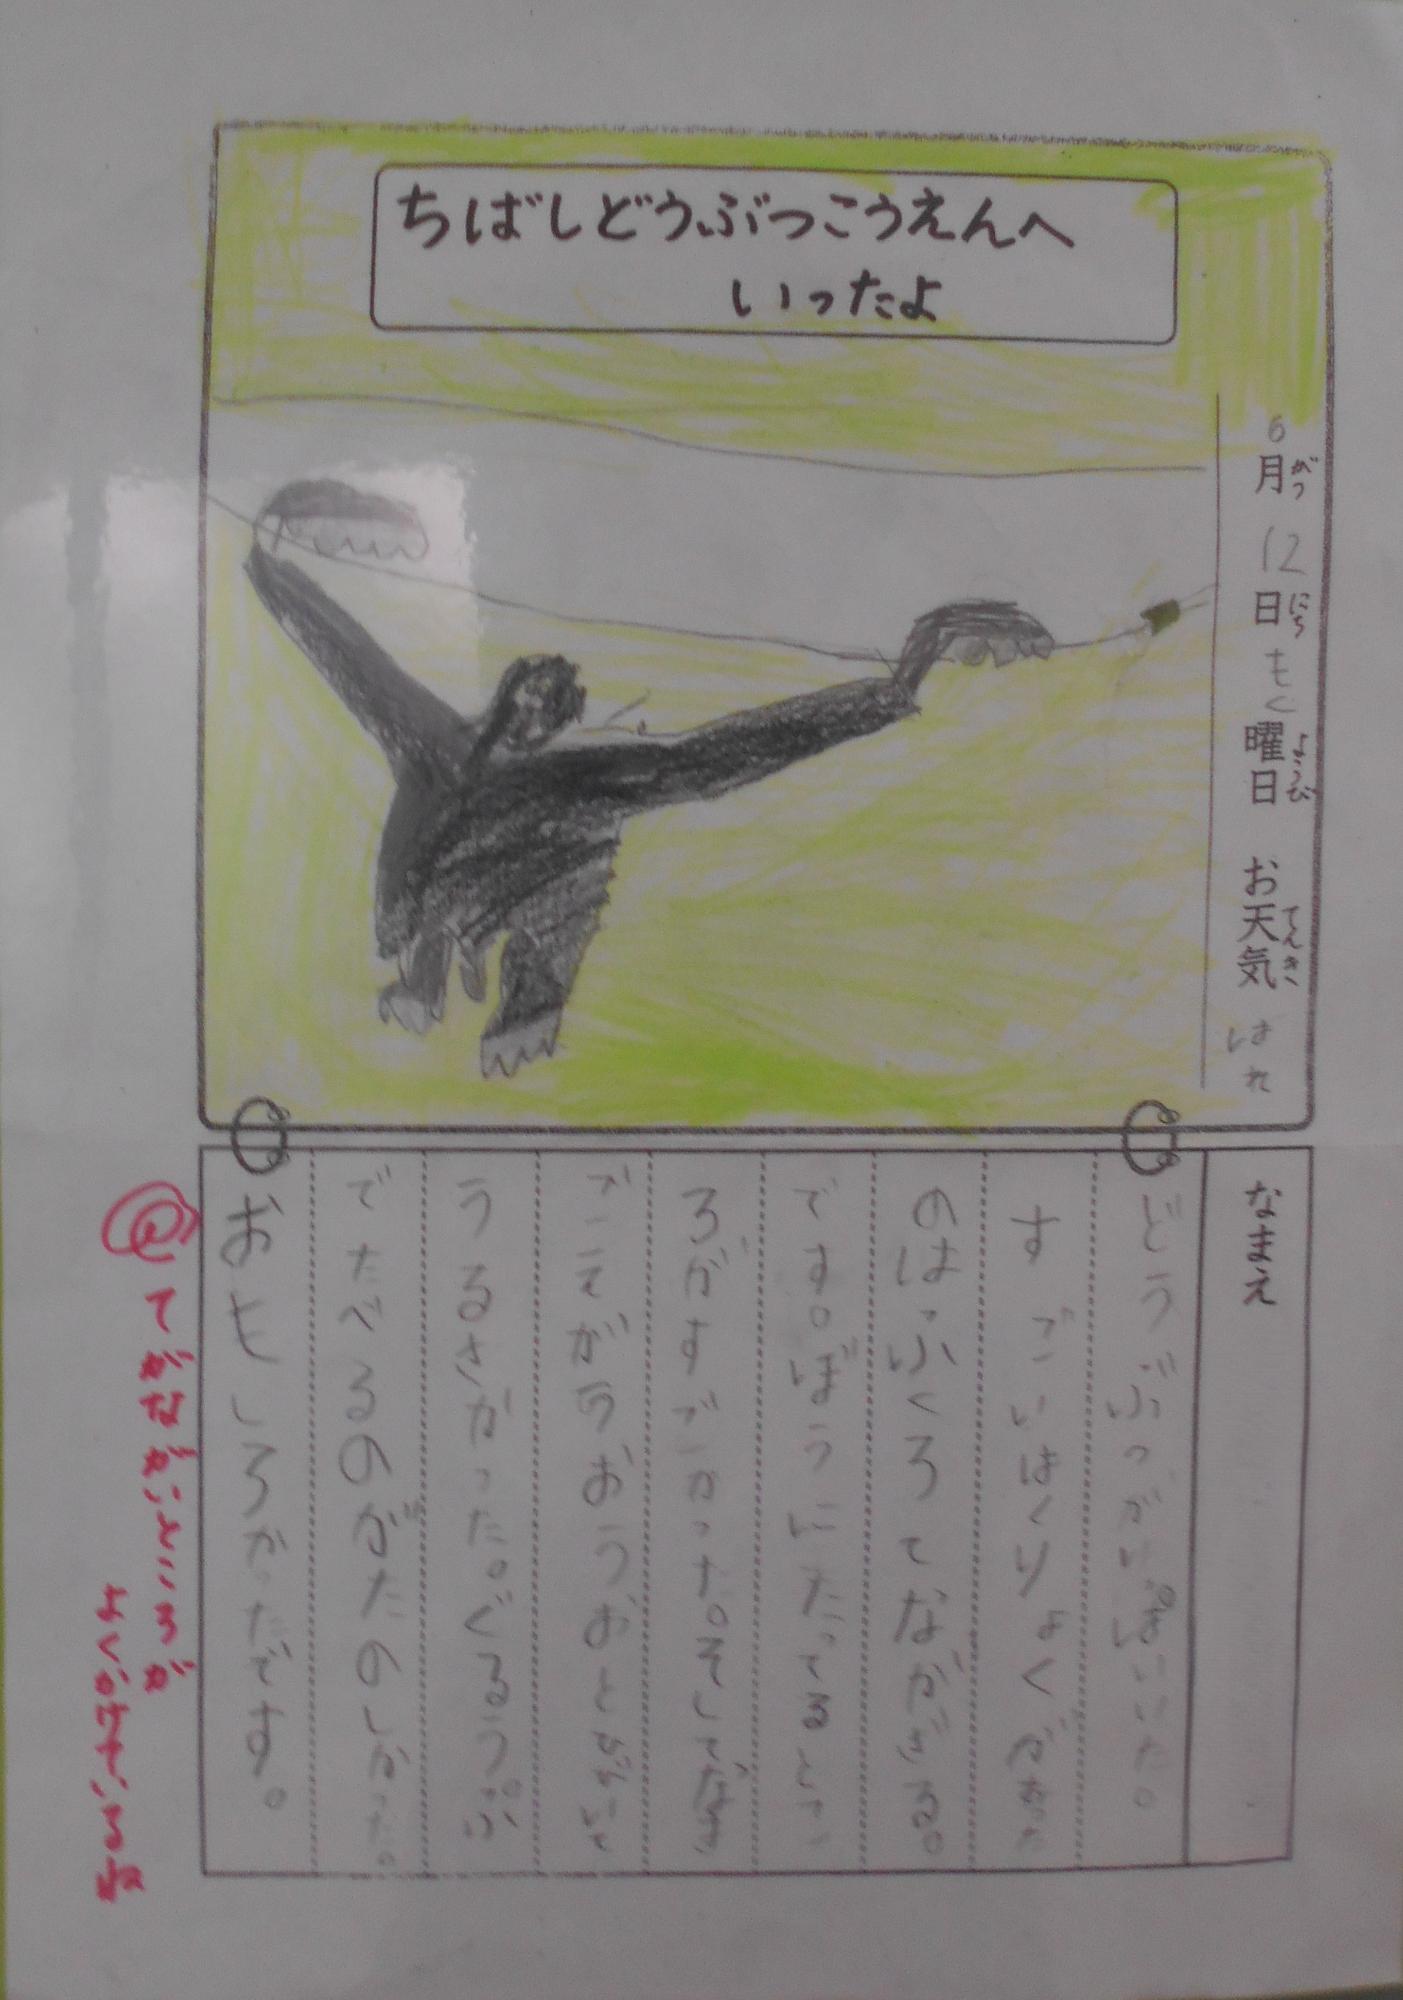 ちばしどうぶつこうえんへ
いったよ
6月12日もく曜日 お天気 はれ
がつ にち ようび てんき
なまえ
どうぶつがいっぱいいた。
すごいはくりょくがあった
のはふくろてながざる。
です。ぼうにたってるとこ
ろがすごかった。そしてなき
ごえがうおうおと
うるさかった。ぐるうぷ
でたべるのがたのしかった。
おもしろかったです。
てがながいところが
よくかけているね